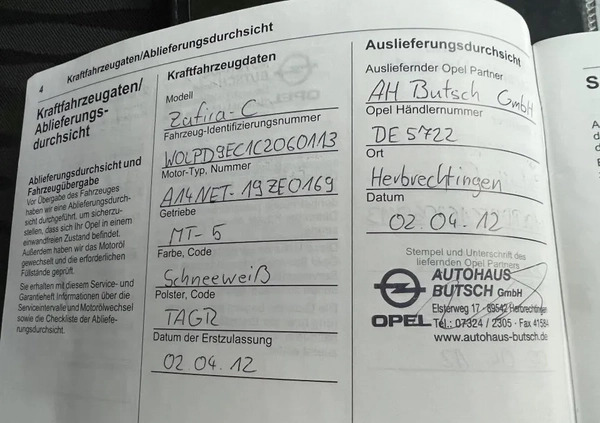 4
Kraftfahrzeugdaten/Ablieferungsdurchsicht
Kraftfahrzeugaten/
Ablieferungs-
durchsicht
Ablieferungsdurchsicht und
Fahrzeugübergabe
Vor Übergabe des Fahrzeuges
haben wir eine Ablieferungsdurch-
sicht durchgeführt, um sicherzu-
stellen, dass sich Ihr Opel in einem
einwandfreien Zustand befindet.
Außerdem haben wir das Motoröl
gewechselt und die erforderlichen
Füllstände geprüft.
Sie erhalten mit diesem Service- und
Garantieheft Informationen über die
Serviceintervalle und Motorölwechsel
sowie die Checkliste der Abliefe-
rungsdurchsicht.
Kraftfahrzeugdaten
Modell
Zafira-C
Fahrzeug-Identifizierungsnummer
W0LPD9EC1C2060113
Motor-Typ, Nummer
A14NET-19ZE0169
Getriebe
MT-5
Farbe, Code
Schneeweiß
Polster, Code
TAGR
Datum der Erstzulassung
02 04.12
Auslieferungsdurchsicht
Ausliefernder Opel Partner
AH Butsch GmbH
Opel Händlernummer
DE 5722
Ort
Herbrechtingen
Datum
02.04.12
Stempel und Unterschrift des
liefernden Opel Partners
OPEL
AUTOHAUS
BUTSCH GmbH
Elsterweg 17 · 89542 Herbrechtingen
Tel.: 07324 / 2305 · Fax 41584
www.autohaus-butsch.de